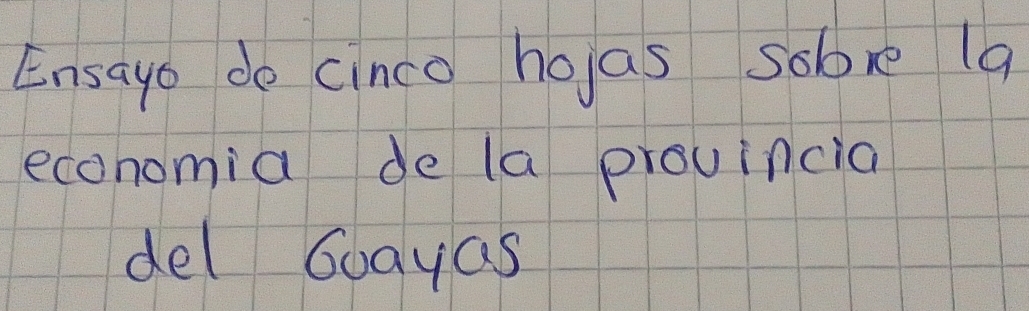 Ensayo de cinco hojas sobre la
economia de la provincia
del Guayas